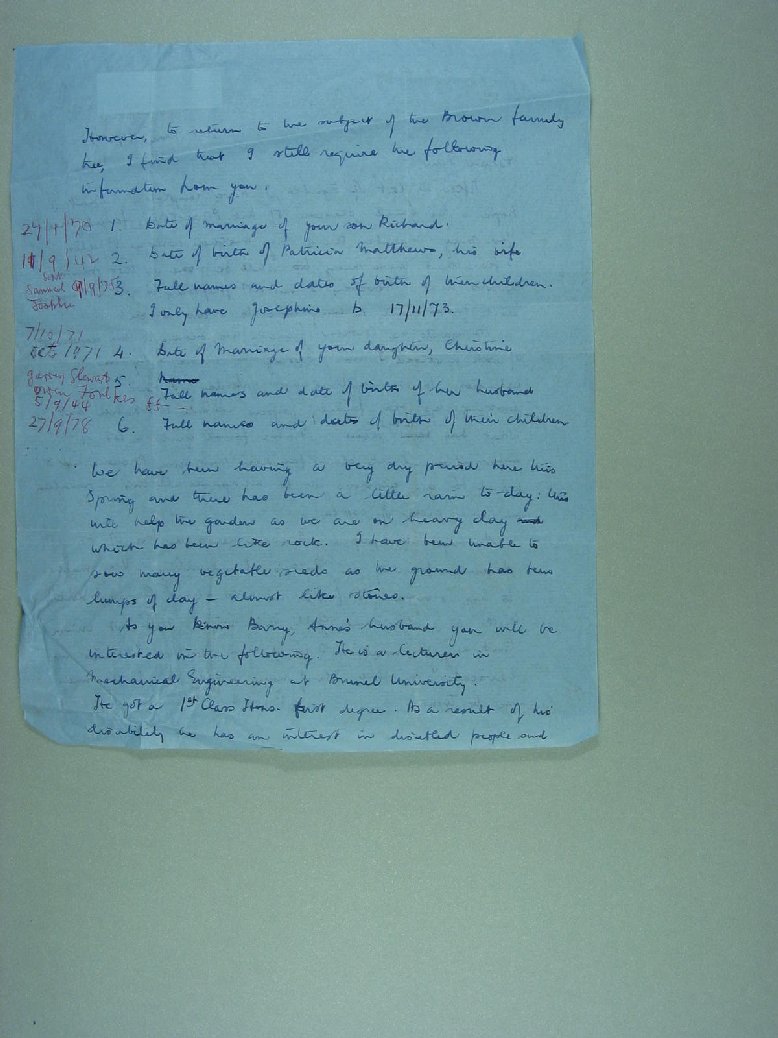 However, to return to the subject of the Brown family
tree, I find that I still require the following
information from you.
1. Date of marriage of your son Richard.
2. Date of birth of Patricia Matthews, his wife
/9/42
Samuel
3. Full names and dates of birth of their children.
I only have Josephine b. 17/11/73.
7/10/71
1971 4. Date of Marriage of your daughter, Christine
5. Full names and date of birth of her husband
5/9/44
27/9/78 6. Full names and dates of birth of their children
We have been having a very dry period here this
Spring and there has been a little rain to-day: this
will help the garden as we are on heavy clay
which has been like rock. I have been unable to
sow many vegetable seeds as the ground has been
lumps of clay – almost like stones.
As you know Barry, Anne's husband you will be
interested in the following. He is a lecturer in
Mechanical Engineering at Brunel University.
He got a 1st Class Hons. first degree. As a result of his
disability he has an interest in disabled people and